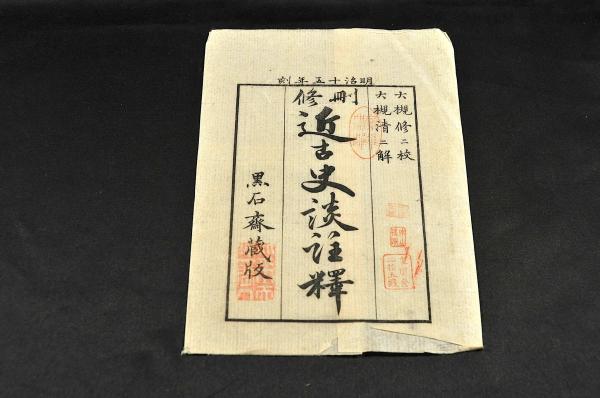 明治十五年刻
大槻修二校
大槻清二解
刪修
近古史談註釋
黒石齋蔵版